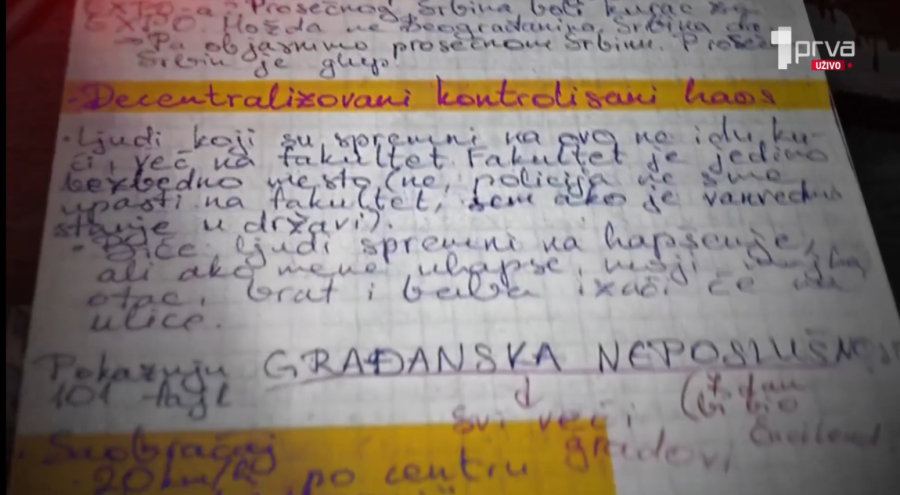 EXPO-a Prosečnog Srbina boli kurac za
EXPO. Možda ne Beograđanina, Srbina da
→ Pa objasnimo prosečnom Srbinu. Proseč
Srbin je glup.
1prva
UŽIVO
· Decentralizovani kontrolisani haos
· Ljudi koji su spremni na ovo ne idu ku-
ći, već na fakultet. Fakultet je jedino
bezbedno mesto (ne, policija ne sme
upasti na fakultet, sem ako je vanredno
stanje u državi).
· Biće ljudi spremni na hapšenje,
ali ako mene uhapse, moji majka,
otac, brat i baba izaći će na
ulice.
Pokazuju GRAĐANSKA NEPOSLUŠNOS
101
svi veći
gradovi
(7. dan
bi bio
· Saobraćaj
20km/h po centru